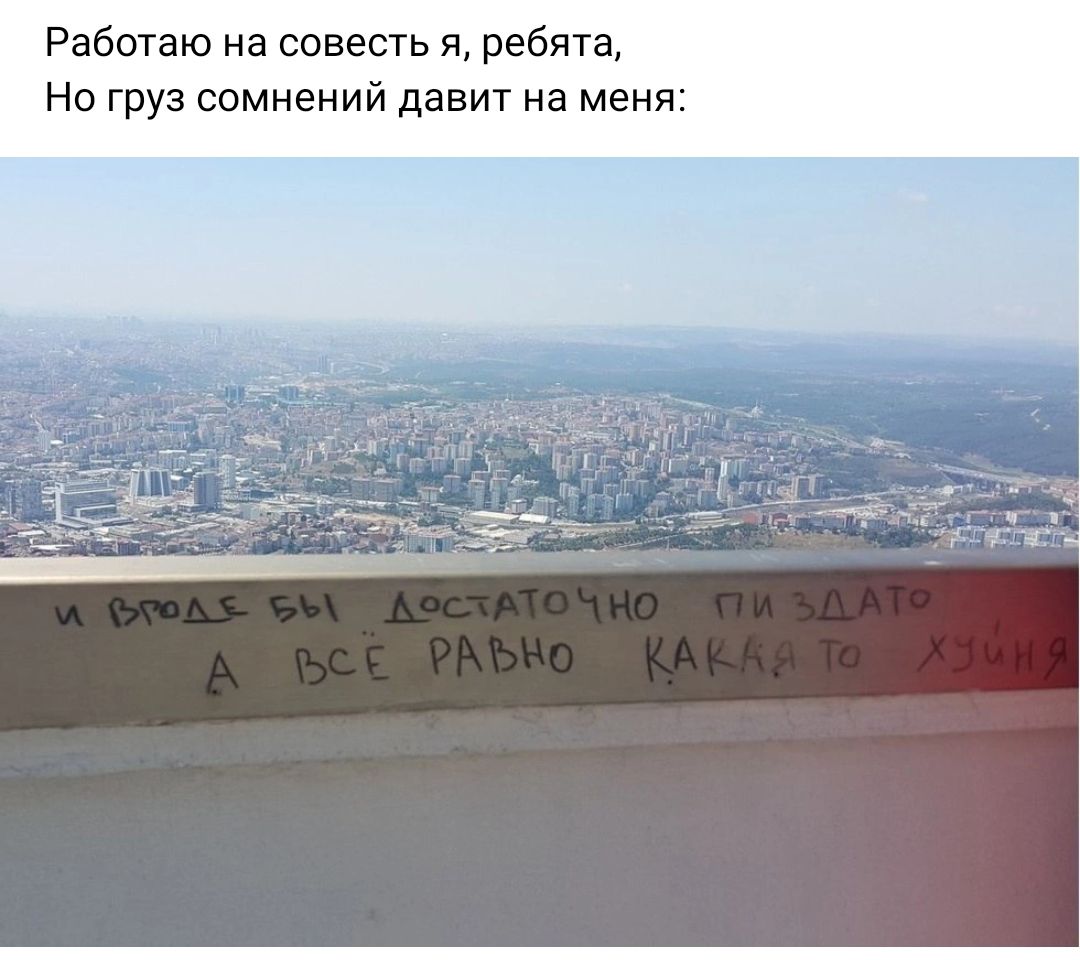 Работаю на совесть я, ребята,
Но груз сомнений давит на меня:
И ВРОДЕ БЫ ДОСТАТОЧНО ПИЗДАТО
А ВСЁ РАВНО КАКАЯ ТО ХУЙНЯ